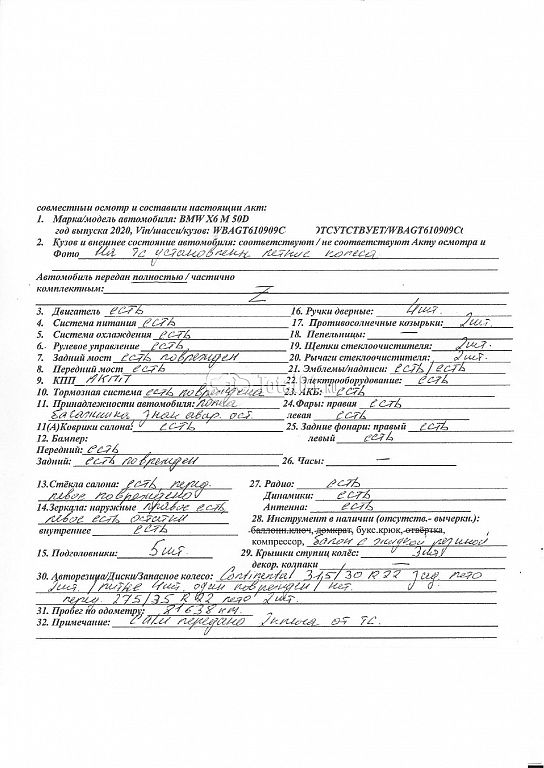 совместный осмотр и составили настоящий Акт:
1. Марка/модель автомобиля: BMW X6 M 50D
год выпуска 2020, Vin/шасси/кузов: WBAGT610909C ОТСУТСТВУЕТ/WBAGT610909C
2. Кузов и внешнее состояние автомобиля: соответствуют / не соответствуют Акту осмотра и
Фото на ТС установлены летние колеса
Автомобиль передан полностью / частично
комплектным: Z
3. Двигатель есть
4. Система питания есть
5. Система охлаждения есть
6. Рулевое управление есть
7. Задний мост есть поврежден
8. Передний мост есть
9. КПП АКПП
10. Тормозная система есть повреждена
11. Принадлежности автомобиля:
багажника, знак авар. ост.
11(А)Коврики салона: есть
12. Бампер:
Передний: есть
Задний: есть поврежден
13.Стёкла салона: есть, перед.
левое повреждено
14.Зеркала: наружные правое есть
левое есть остатки
внутреннее есть
15. Подголовники: 5 шт.
16. Ручки дверные: 4 шт.
17. Противосолнечные козырьки: 2 шт.
18. Пепельницы: —
19. Щетки стеклоочистителя: 2 шт.
20. Рычаги стеклоочистителя: 2 шт.
21. Эмблемы/надписи: есть/есть
22. Электрооборудование: есть
23. АКБ: есть
24.Фары: правая есть
левая есть
25. Задние фонари: правый есть
левый есть
26. Часы: —
27. Радио: есть
Динамики: есть
Антенна: есть
28. Инструмент в наличии (отсутств.- вычеркн.):
баллонн.ключ, домкрат, букс.крюк, отвёртка,
компрессор, балон с жидкой резиной
29. Крышки ступиц колёс: 3 шт
декор. колпаки —
30. Авторезина/Диски/Запасное колесо: Continental 315/30 R22 зад. лето
2 шт. / литье 4 шт. один поврежден / нет.
перед. 275/35 R22 лето 2 шт.
31. Пробег по одометру: 21638 км.
32. Примечание: передано 2 ключа от ТС.